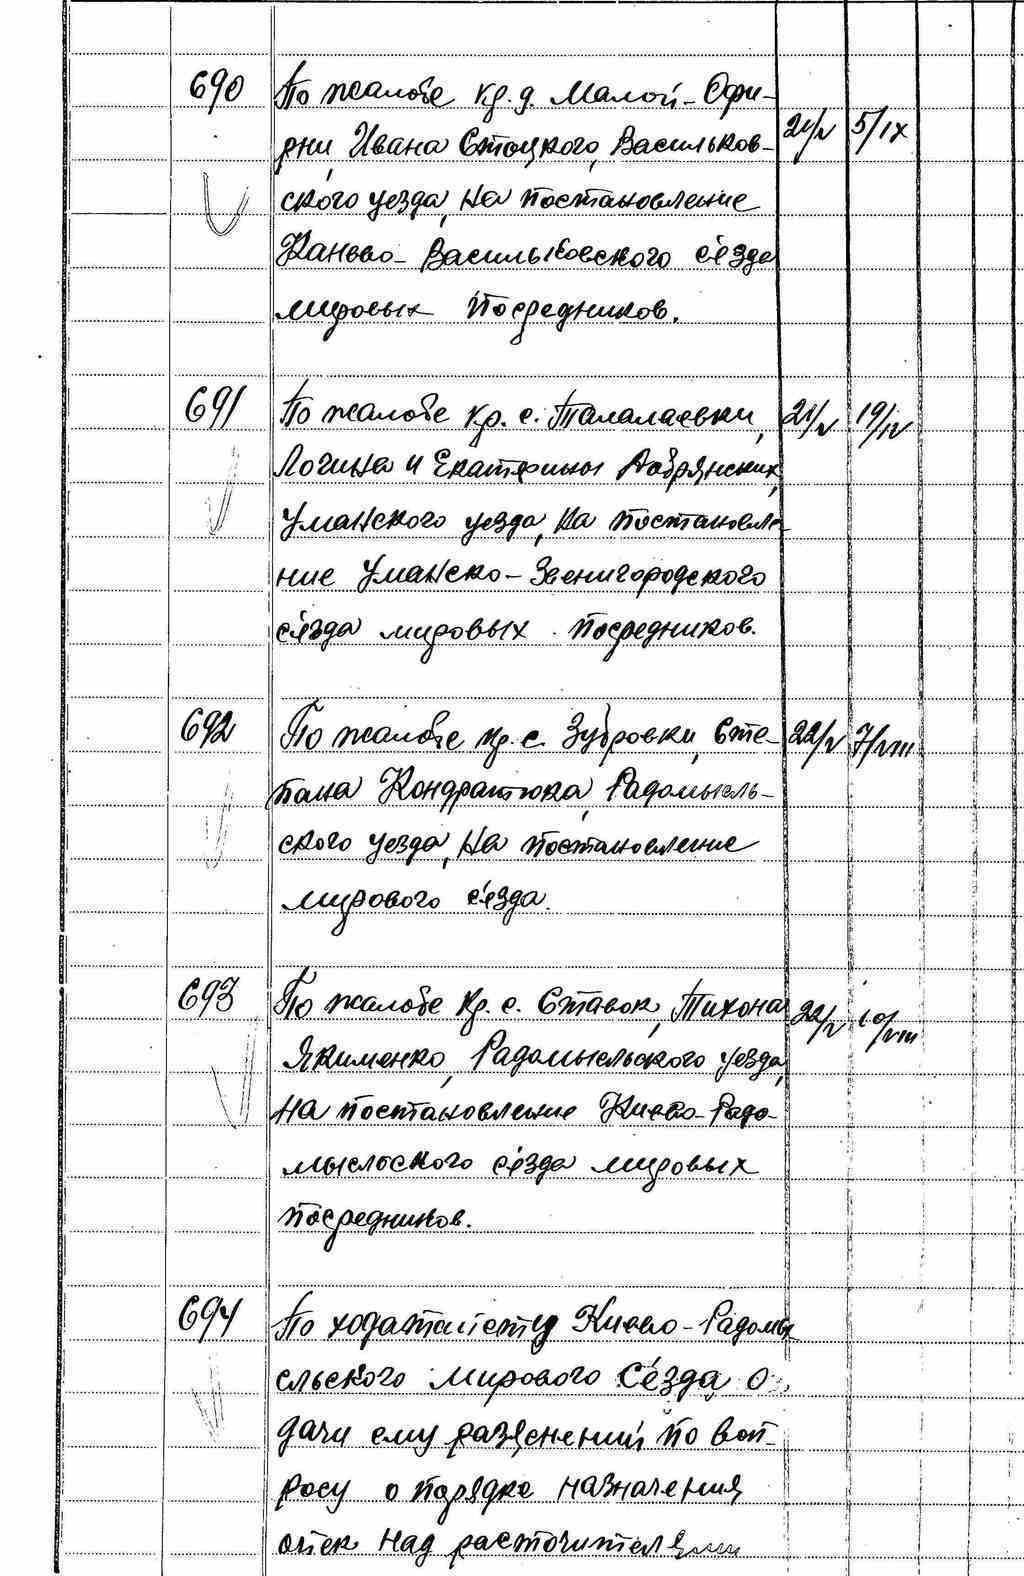 690 По жалобе кр. д. Малой-Офи-
рни, Ивана Стоцкого, Васильков- 21/V 5/IX
ского уезда, на постановление
Канево-Васильковского с'езда
мировых посредников.
691 По жалобе кр. с. Талалаевки, 21/V 19/IV
Логина и Екатерины Добрянских,
Уманского уезда, на постановле-
ние Уманско-Звенигородского
с'езда мировых посредников.
692 По жалобе кр. с. Зубровки, Сте- 22/V 7/VIII
пана Кондратюка, Радомысль-
ского уезда, на постановление
мирового с'езда.
693 По жалобе кр. с. Ставок, Тихона 22/V 10/VIII
Якименко, Радомысльского уезда,
на постановление Киево-Радо-
мысльского с'езда мировых
посредников.
694 По ходатайству Киево-Радомы
сльского Мирового С'езда о
дачи ему раз'яснений по воп-
росу о порядке назначения
опек над расточителями